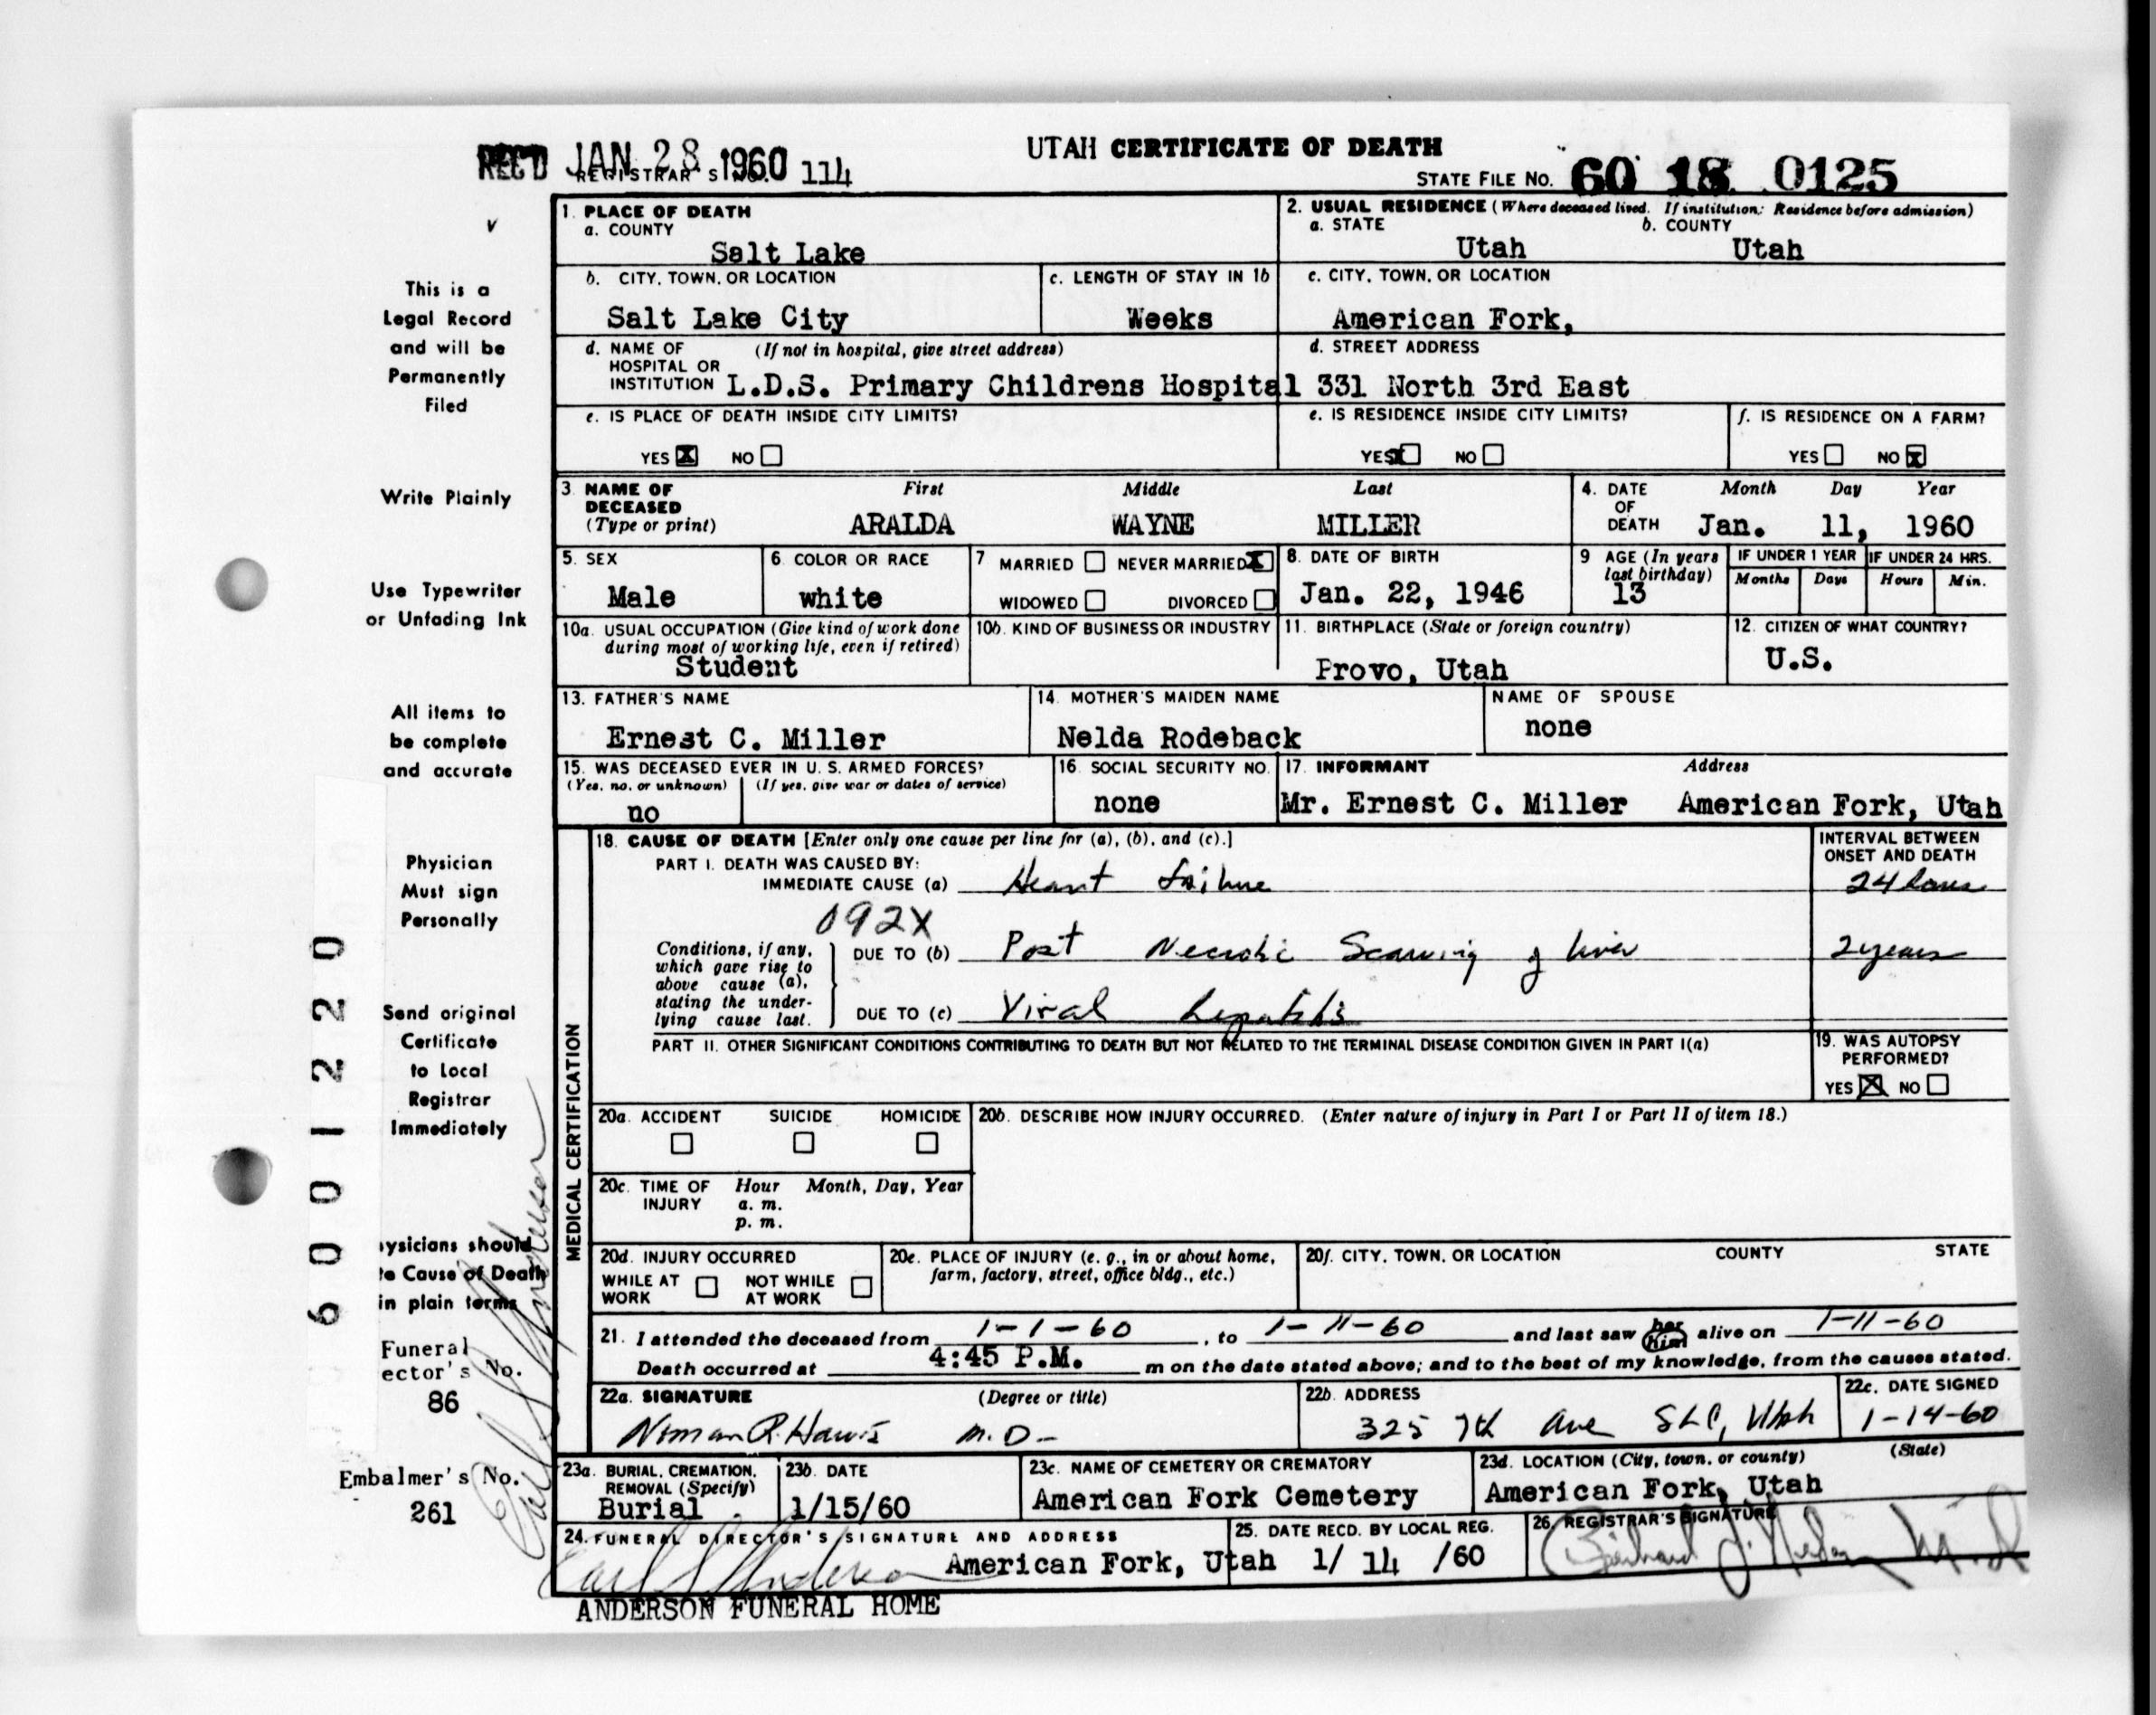 REC'D JAN 28 1960
REGISTRAR'S NO. 114
UTAH CERTIFICATE OF DEATH
STATE FILE NO. 60 18 0125
v
This is a
Legal Record
and will be
Permanently
Filed
Write Plainly
Use Typewriter
or Unfading Ink
All items to
be complete
and accurate
Physician
Must sign
Personally
Send original
Certificate
to Local
Registrar
Immediately
ysicians should
te Cause of Death
in plain terms
Funeral
ector's No.
86
Embalmer's No.
261
6001220
Earl S Anderson
1. PLACE OF DEATH
a. COUNTY
Salt Lake
2. USUAL RESIDENCE (Where deceased lived. If institution: Residence before admission)
a. STATE b. COUNTY
Utah Utah
b. CITY, TOWN, OR LOCATION
Salt Lake City
c. LENGTH OF STAY IN 1b
Weeks
c. CITY, TOWN, OR LOCATION
American Fork,
d. NAME OF (If not in hospital, give street address)
HOSPITAL OR
INSTITUTION L.D.S. Primary Childrens Hospital
d. STREET ADDRESS
331 North 3rd East
e. IS PLACE OF DEATH INSIDE CITY LIMITS?
YES X NO
e. IS RESIDENCE INSIDE CITY LIMITS?
YES X NO
f. IS RESIDENCE ON A FARM?
YES NO X
3. NAME OF First Middle Last
DECEASED
(Type or print) ARALDA WAYNE MILLER
4. DATE Month Day Year
OF
DEATH Jan. 11, 1960
5. SEX
Male
6. COLOR OR RACE
white
7 MARRIED NEVER MARRIED X
WIDOWED DIVORCED
8. DATE OF BIRTH
Jan. 22, 1946
9 AGE (In years
last birthday)
13
IF UNDER 1 YEAR IF UNDER 24 HRS.
Months Days Hours Min.
10a. USUAL OCCUPATION (Give kind of work done
during most of working life, even if retired)
Student
10b. KIND OF BUSINESS OR INDUSTRY
11. BIRTHPLACE (State or foreign country)
Provo, Utah
12. CITIZEN OF WHAT COUNTRY?
U.S.
13. FATHER'S NAME
Ernest C. Miller
14. MOTHER'S MAIDEN NAME
Nelda Rodeback
NAME OF SPOUSE
none
15. WAS DECEASED EVER IN U. S. ARMED FORCES?
(Yes, no, or unknown) (If yes, give war or dates of service)
no
16. SOCIAL SECURITY NO.
none
17. INFORMANT Address
Mr. Ernest C. Miller American Fork, Utah
MEDICAL CERTIFICATION
18. CAUSE OF DEATH [Enter only one cause per line for (a), (b), and (c).]
PART I. DEATH WAS CAUSED BY:
IMMEDIATE CAUSE (a) Heart failure
INTERVAL BETWEEN
ONSET AND DEATH
24 hours
092X
Conditions, if any,
which gave rise to
above cause (a),
stating the under-
lying cause last.
DUE TO (b) Post Necrotic Scarring of liver
2 years
DUE TO (c) Viral hepatitis
PART II. OTHER SIGNIFICANT CONDITIONS CONTRIBUTING TO DEATH BUT NOT RELATED TO THE TERMINAL DISEASE CONDITION GIVEN IN PART I(a)
19. WAS AUTOPSY
PERFORMED?
YES X NO
20a. ACCIDENT SUICIDE HOMICIDE
20b. DESCRIBE HOW INJURY OCCURRED. (Enter nature of injury in Part I or Part II of item 18.)
20c. TIME OF Hour Month, Day, Year
INJURY a. m.
p. m.
20d. INJURY OCCURRED
WHILE AT NOT WHILE
WORK AT WORK
20e. PLACE OF INJURY (e. g., in or about home,
farm, factory, street, office bldg., etc.)
20f. CITY, TOWN, OR LOCATION COUNTY STATE
21. I attended the deceased from 1-1-60, to 1-11-60 and last saw her him alive on 1-11-60
Death occurred at 4:45 P.M. m on the date stated above; and to the best of my knowledge, from the causes stated.
22a. SIGNATURE (Degree or title)
Norman R. Hawis M.D-
22b. ADDRESS
325 7th Ave SLC, Utah
22c. DATE SIGNED
1-14-60
23a. BURIAL, CREMATION,
REMOVAL (Specify)
Burial
23b. DATE
1/15/60
23c. NAME OF CEMETERY OR CREMATORY
American Fork Cemetery
23d. LOCATION (City, town, or county) (State)
American Fork, Utah
24. FUNERAL DIRECTOR'S SIGNATURE AND ADDRESS
Earl S Anderson American Fork, Utah
ANDERSON FUNERAL HOME
25. DATE RECD. BY LOCAL REG.
1/ 14 /60
26. REGISTRAR'S SIGNATURE